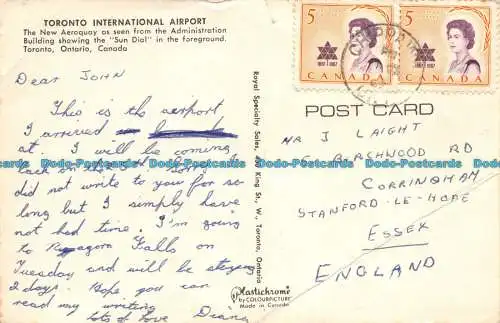 TORONTO INTERNATIONAL AIRPORT
The New Aeroquay as seen from the Administration
Building showing the "Sun Dial" in the foreground.
Toronto, Ontario, Canada
Dear JOHN
This is the airport
I arrived
at. I will be coming
back in
did not write to you for so
long but I simply have
not had time. I'm going
to Falls on
Tuesday and will be staying
2 days. Hope you can
read my writing
lots of love Diana
Royal Specialty Sales, King St., W., Toronto, Ontario
Plastichrome
by COLOURPICTURE
Made in Canada
5
1867 1967
CANADA
5
1867 1967
CANADA
POST CARD
MR J LAIGHT
RD
CORRINGHAM
STANFORD-LE-HOPE
ESSEX
ENGLAND
Dodo-Postcards Dodo-Postcards Dodo-Postcards Dodo-Postcards